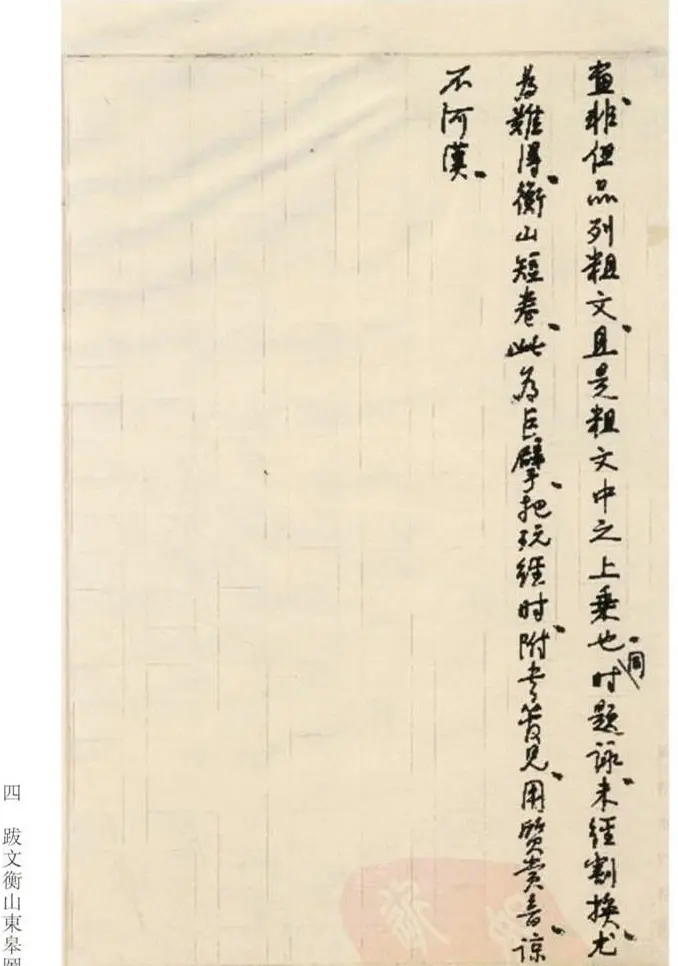 畫、非但品列粗文、且是粗文中之上乘也。同時題詠、未經割換、尤
為難得、衡山短卷、此為巨擘、把玩經時、附書管見、用質賞音、諒
不河漢。
四　跋文衡山東皋圖